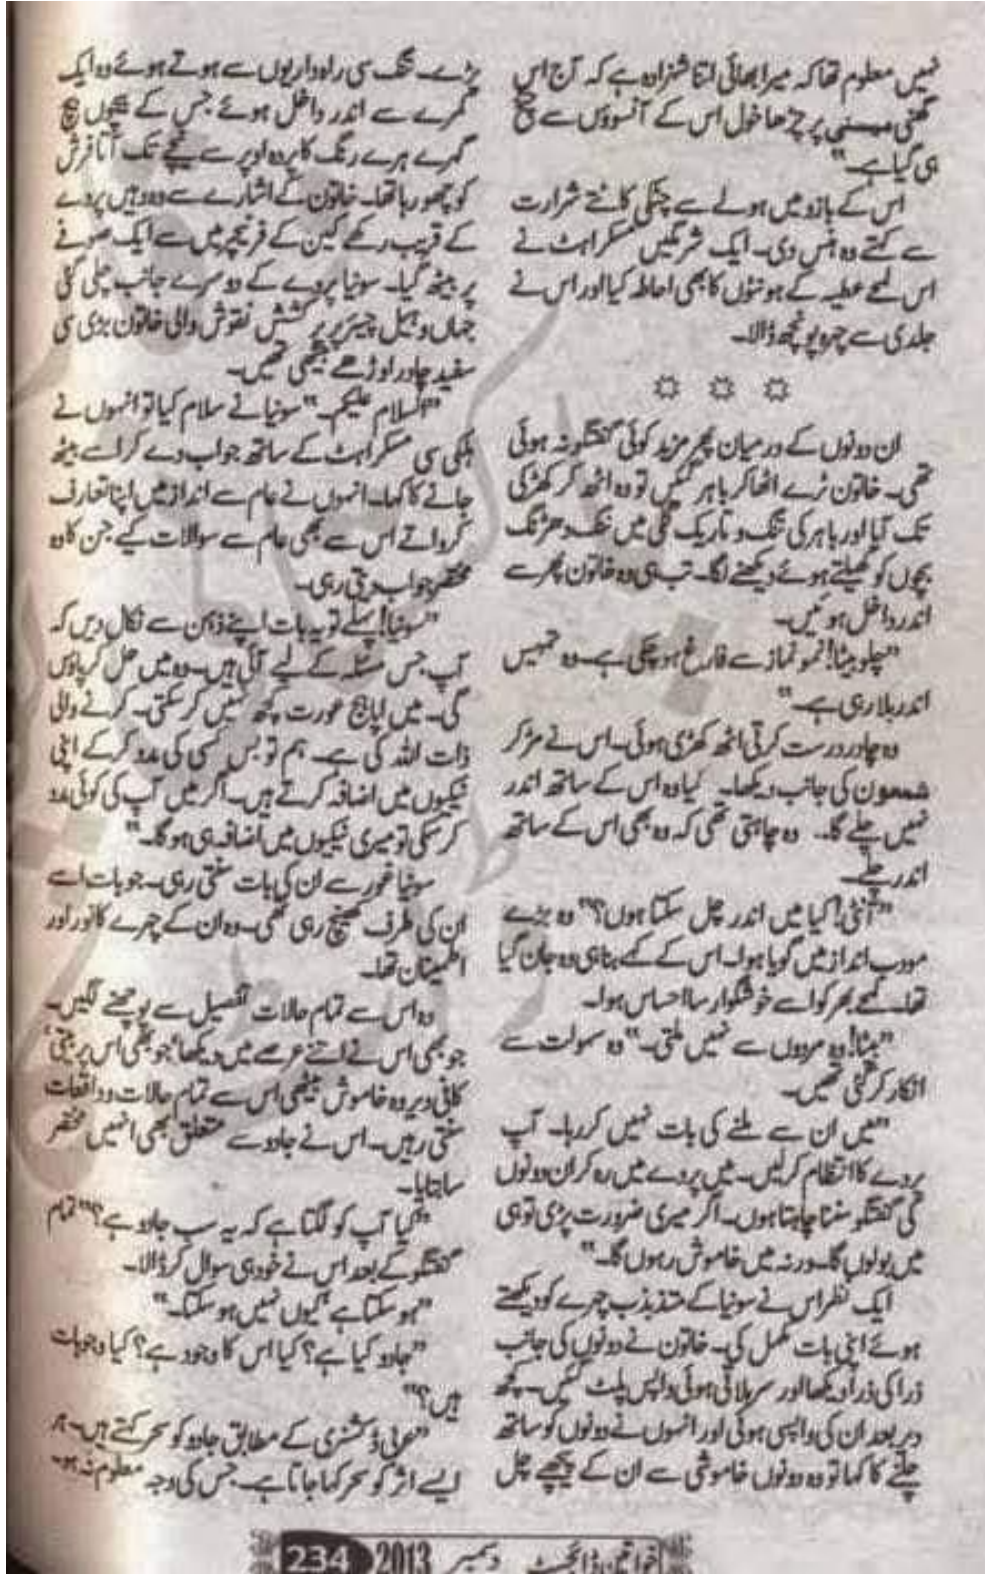 نہیں معلوم تھا کہ میرا بھائی اتنا شہزادہ ہے کہ آج اس
گھنی میسنی پر چڑھا خول اس کے آنسوؤں سے چٹخ
ہی گیا ہے۔"
اس کے بازو میں ہولے سے چٹکی کاٹتے شرارت
سے کہتے وہ ہنس دی۔ ایک شرمگیں مسکراہٹ نے
اس لمحے عطیہ کے ہونٹوں کا بھی احاطہ کیا اور اس نے
جلدی سے چہرہ پونچھ ڈالا۔
ان دونوں کے درمیان پھر مزید کوئی گفتگو نہ ہوئی
تھی۔ خاتون ٹرے اٹھا کر باہر گئیں تو وہ اٹھ کر کھڑکی
تک آیا اور باہر کی تنگ و تاریک گلی میں ننگ دھڑنگ
بچوں کو کھیلتے ہوئے دیکھنے لگا۔ تب ہی وہ خاتون پھر سے
اندر داخل ہوئیں۔
"چلو بیٹا! نمو نماز سے فارغ ہو چکی ہے۔ وہ تمہیں
اندر بلا رہی ہے۔"
وہ چادر درست کرتی اٹھ کھڑی ہوئی۔ اس نے مڑ کر
شمعون کی جانب دیکھا۔ کیا وہ اس کے ساتھ اندر
نہیں چلے گا۔ وہ چاہتی تھی کہ وہ بھی اس کے ساتھ
اندر چلے۔
"آنٹی! کیا میں اندر چل سکتا ہوں؟" وہ بڑے
مودب انداز میں گویا ہوا۔ اس کے کہے بنا ہی وہ جان گیا
تھا۔ لمحے بھر کو اسے خوشگوار سا احساس ہوا۔
"بیٹا! وہ مردوں سے نہیں ملتی۔" وہ سہولت سے
انکار کر گئی تھیں۔
"میں ان سے ملنے کی بات نہیں کر رہا۔ آپ
پردے کا انتظام کر لیں۔ میں پردے میں رہ کر ان دونوں
کی گفتگو سننا چاہتا ہوں۔ اگر میری ضرورت پڑی تو ہی
میں بولوں گا۔ ورنہ میں خاموش رہوں گا۔"
ایک نظر اس نے سونیا کے متذبذب چہرے کو دیکھتے
ہوئے اپنی بات مکمل کی۔ خاتون نے دونوں کی جانب
ذرا کی ذرا دیکھا اور سر ہلاتی ہوئی واپس پلٹ گئیں۔ کچھ
دیر بعد ان کی واپسی ہوئی اور انہوں نے دونوں کو ساتھ
چلنے کا کہا تو وہ دونوں خاموشی سے ان کے پیچھے چل
پڑے۔ تنگ سی راہداریوں سے ہوتے ہوئے وہ ایک
کمرے سے اندر داخل ہوئے جس کے بیچوں بیچ
گہرے ہرے رنگ کا پردہ اوپر سے نیچے تک آتا فرش
کو چھو رہا تھا۔ خاتون کے اشارے سے وہ وہیں پردے
کے قریب رکھے کین کے فرنیچر میں سے ایک صوفے
پر بیٹھ گیا۔ سونیا پردے کے دوسرے جانب چلی گئی
جہاں وہیل چیئر پر پرکشش نقوش والی خاتون بڑی سی
سفید چادر اوڑھے بیٹھی تھیں۔
"السلام علیکم۔" سونیا نے سلام کیا تو انہوں نے
ہلکی سی مسکراہٹ کے ساتھ جواب دے کر اسے بیٹھ
جانے کا کہا۔ انہوں نے عام سے انداز میں اپنا تعارف
کرواتے اس سے بھی عام سے سوالات کیے جن کا وہ
مختصر جواب دیتی رہی۔
"سونیا! پہلے تو یہ بات اپنے ذہن سے نکال دیں کہ
آپ جس مسئلہ کے لیے آئی ہیں۔ وہ میں حل کر پاؤں
گی۔ میں اپاہج عورت کچھ نہیں کر سکتی۔ کرنے والی
ذات اللہ کی ہے۔ ہم تو بس کسی کی مدد کر کے اپنی
نیکیوں میں اضافہ کرتے ہیں۔ اگر میں آپ کی کوئی مدد
کر سکی تو میری نیکیوں میں اضافہ ہی ہو گا۔"
سونیا غور سے ان کی بات سنتی رہی۔ جو بات اسے
ان کی طرف کھینچ رہی تھی۔ وہ ان کے چہرے کا نور اور
اطمینان تھا۔
وہ اس سے تمام حالات تفصیل سے پوچھنے لگیں۔
جو بھی اس نے اتنے عرصے میں دیکھا' جو بھی اس پر بیتی'
کافی دیر وہ خاموش بیٹھی اس سے تمام حالات و واقعات
سنتی رہیں۔ اس نے جادو سے متعلق بھی انہیں مختصر
سا بتایا۔
"کیا آپ کو لگتا ہے کہ یہ سب جادو ہے؟" تمام
گفتگو کے بعد اس نے خود ہی سوال کر ڈالا۔
"ہو سکتا ہے' کیوں نہیں ہو سکتا۔"
"جادو کیا ہے؟ کیا اس کا وجود ہے؟ کیا وجوہات
ہیں؟"
"عربی ڈکشنری کے مطابق جادو کو سحر کہتے ہیں۔ ہر
ایسے اثر کو سحر کہا جاتا ہے۔ جس کی وجہ معلوم نہ ہو۔
خواتین ڈائجسٹ دسمبر 2013 234